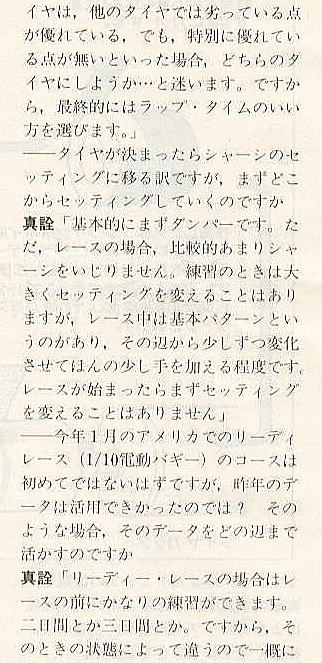 イヤは，他のタイヤでは劣っている点
が優れている，でも，特別に優れてい
る点が無いといった場合，どちらのタ
イヤにしようか…と迷います。ですか
ら，最終的にはラップ・タイムのいい
方を選びます。」
――タイヤが決まったらシャーシのセ
ッティングに移る訳ですが，まずどこ
からセッティングしていくのですか
真詮「基本的にまずダンパーです。た
だ，レースの場合，比較的あまりシャ
ーシをいじりません。練習のときは大
きくセッティングを変えることはあり
ますが，レース中は基本パターンとい
うのがあり，その辺から少しずつ変化
させてほんの少し手を加える程度です。
レースが始まったらまずセッティング
を変えることはありません」
――今年１月のアメリカでのリーディ
レース（1/10電動バギー）のコースは
初めてではないはずですが，昨年のデ
ータは活用できかったのでは？　その
ような場合，そのデータをどの辺まで
活かすのですか
真詮「リーディー・レースの場合はレ
ースの前にかなりの練習ができます。
二日間とか三日間とか。ですから，そ
のときの状態によって違うので一概に